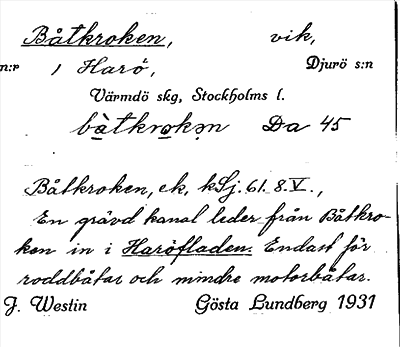 Båtkroken, vik,
n:r 1 Harö, Djurö s:n
Värmdö skg, Stockholms l.
bàtkrokən Da 45
Båtkroken, ek, kSj. 61. 8. V.,
En grävd kanal leder från Båtkro-
ken in i Haröfladen. Endast för
roddbåtar och mindre motorbåtar.
J. Westin Gösta Lundberg 1931